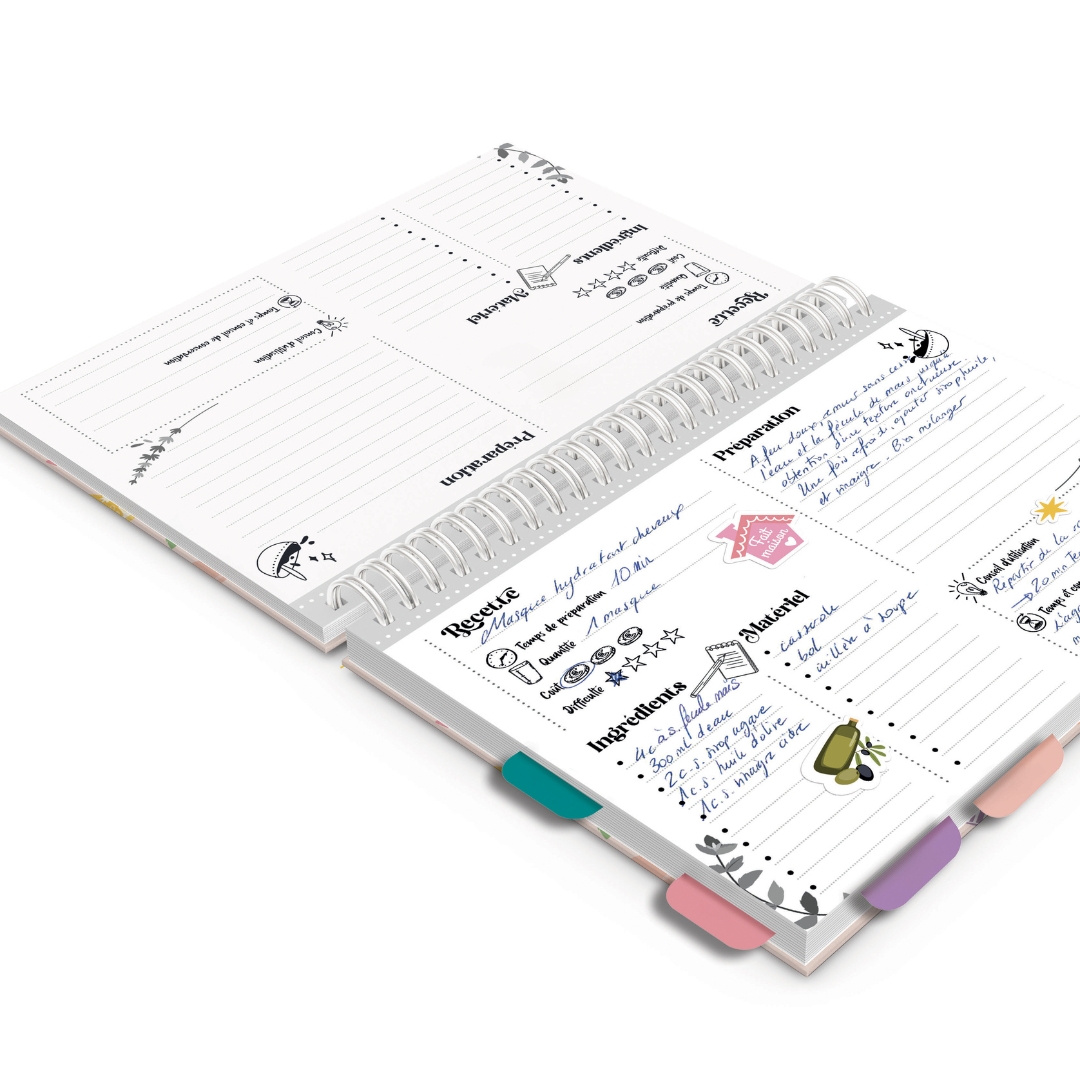 Recette
Masque hydratant cheveux
Temps de préparation 10 min
Quantité 1 masque
Coût
Difficulté
Ingrédients
4 c à s. fécule maïs
300 ml d'eau
2 c.s. sirop agave
1 c.s. huile d'olive
1 c.s. vinaigre cidre
Fait
maison
Matériel
casserole
bol
cuillère à soupe
Préparation
A feu doux, remuer sans
l'eau et la fécule de maïs jusqu'à
obtention d'une texture onctueuse
Une fois refroidi, ajouter sirop, huile,
et vinaigre. Bien mélanger
Conseil d'utilisation
Répartir de la
→ 20 min
Temps et
Recette
Temps de préparation
Quantité
Coût
Difficulté
Ingrédients
Matériel
Préparation
Conseil d'utilisation
Temps et conseil de conservation